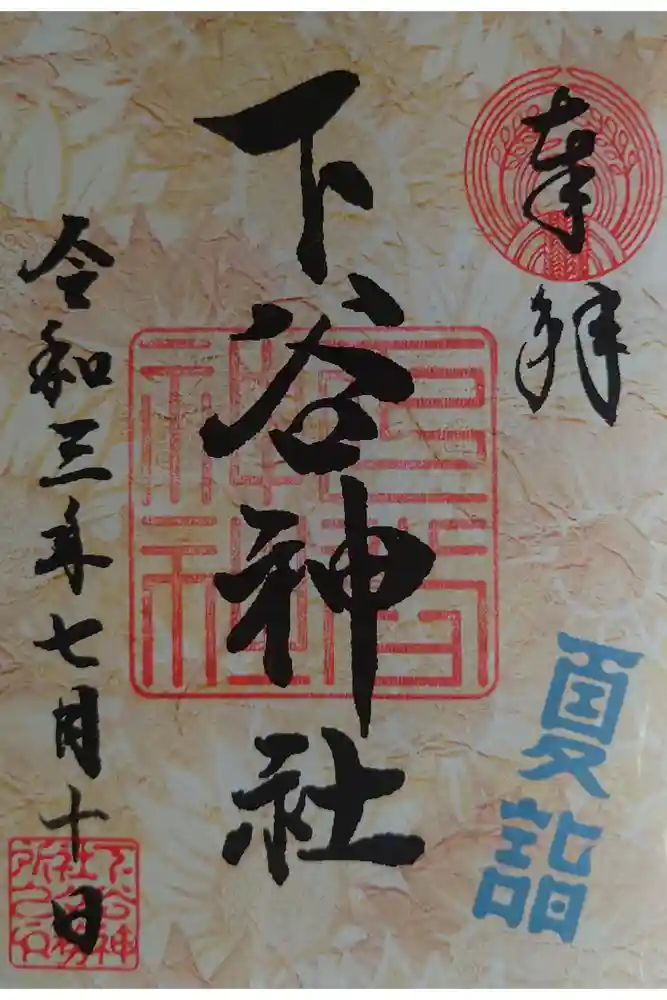 奉拝
下谷神社
夏詣
令和三年七月十日
下谷神
社社務
所之印